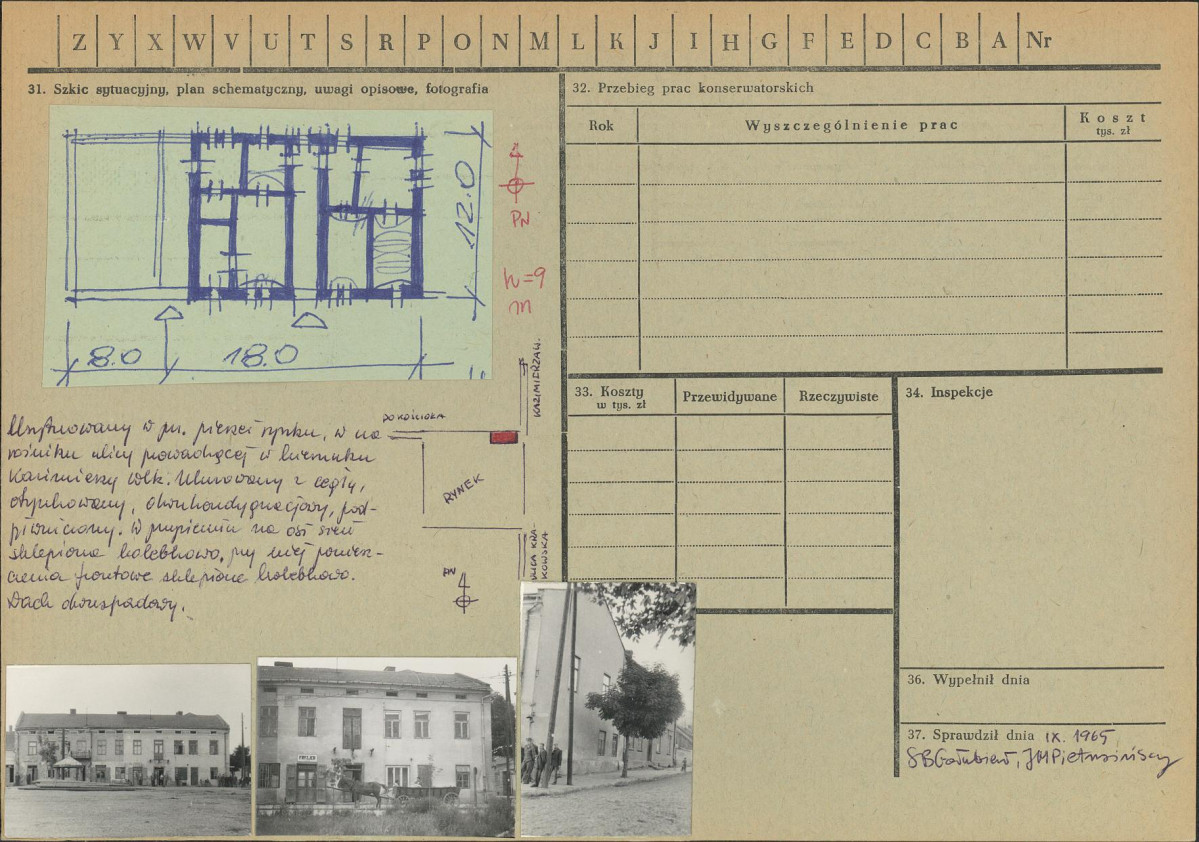 Z Y X W V U T S R P O N M L K J I H G F E D C B A Nr
31. Szkic sytuacyjny, plan schematyczny, uwagi opisowe, fotografia
12.0
8.0
18.0
PN
h=9
m
KAZIMIERZA W.
DO KOŚCIOŁA
RYNEK
PN
Usytuowany w pn. pierzei rynku, w na
rożniku ulicy prowadzącej w kierunku
Kazimierzy Wlk. Murowany z cegły,
otynkowany, dwukondygnacjowy, pod-
piwniczony. W przyziemiu na osi sień
sklepiona kolebkowo, przy niej pomiesz-
czenia frontowe sklepione kolebkowo.
Dach dwuspadowy.
32. Przebieg prac konserwatorskich
Rok
Wyszczególnienie prac
Koszt
tys. zł
33. Koszty
w tys. zł
Przewidywane
Rzeczywiste
34. Inspekcje
36. Wypełnił dnia
37. Sprawdził dnia IX. 1965